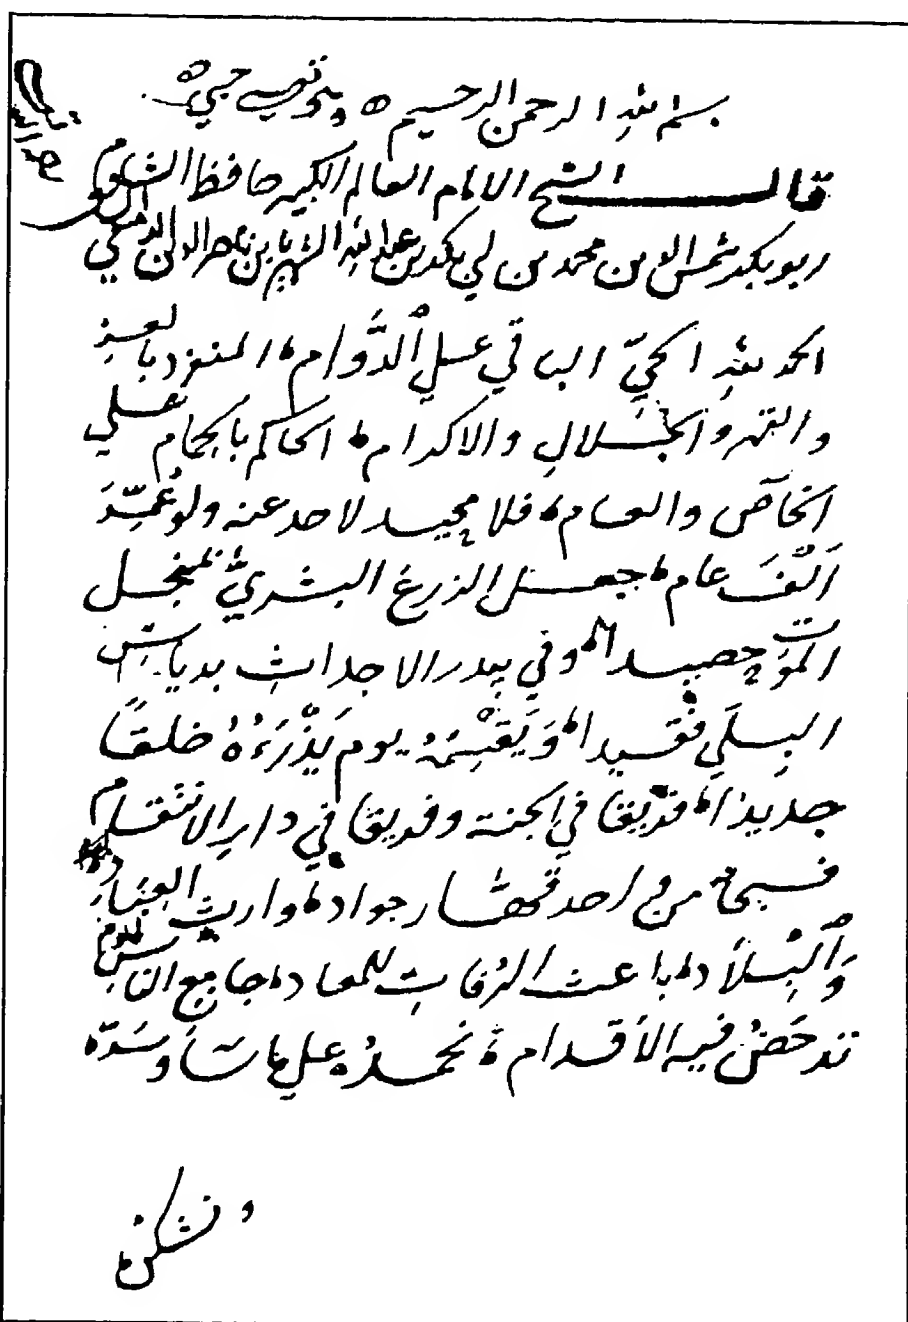 بسم الله الرحمن الرحيم ه وبه توفيقي حسبي ه
قال الشيخ الامام العالم الكبير حافظ الشام
ابو بكر شمس الدين محمد بن ابي بكر بن عبد الله الشهير بابن ناصر الدين الدمشقي
الحمد لله الحيّ الباقي على ٱلدَّوام، المنفرد بالعز
والقهر والجَلالِ والاكرام، الحاكم بالحمام على
الخاصّ والعام، فلا محيد لاحد عنه ولو عُمِّرَ
اَلْفَ عام، جعل الزرع البشريَّ بمنجل
الموت حصيدا، وفي بيدر الاجداث بدياس
البِلَى فقيدا، وَيَقسِمُه يوم يَذْرَءُهُ خلقًا
جديدا، فريقا في الجنة وفريقا في دارِ الانتقام
فسبحانه من واحد قهّار جواد، وارث العِبَاد
وَٱلْبِلاَد، باعث الرُفاتِ للمعاد، جامع الناسِ ليوم
تدحَضُ فيه الأقدام، نحمدُه على ما شاَ وسَرّه
ونشكره